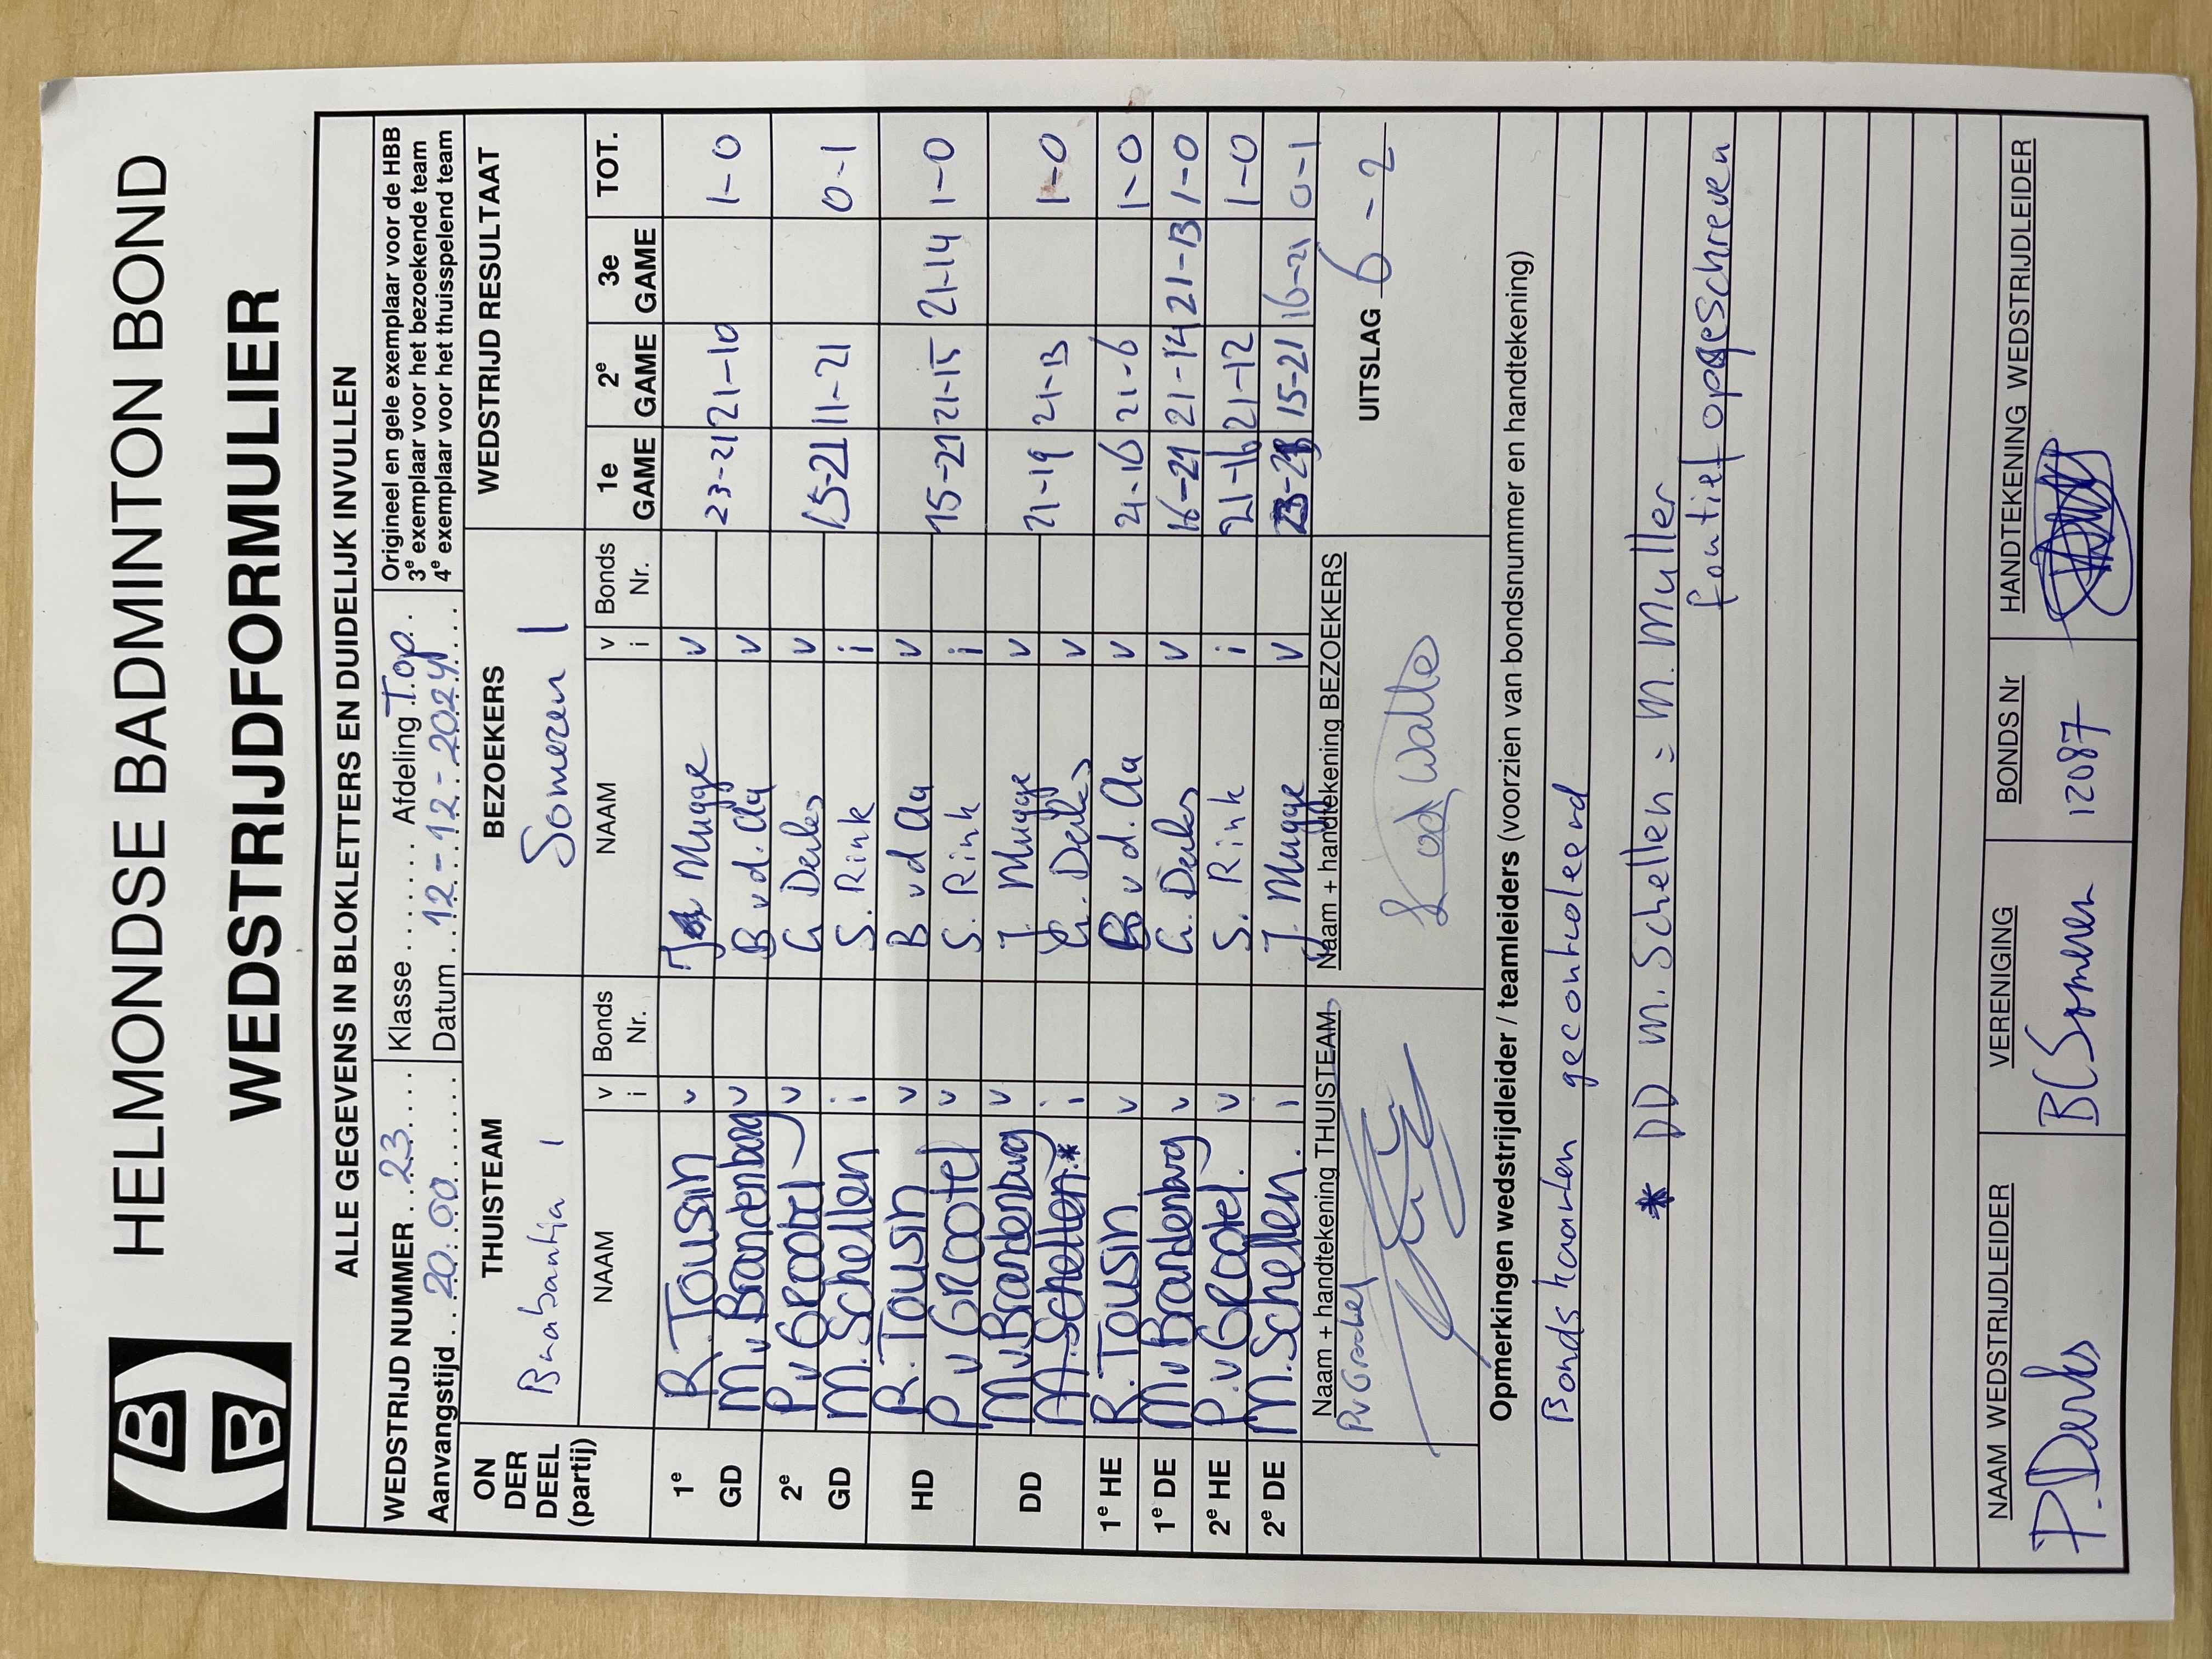 HELMONDSE BADMINTON BOND
WEDSTRIJDFORMULIER
ALLE GEGEVENS IN BLOKLETTERS EN DUIDELIJK INVULLEN
WEDSTRIJD NUMMER ..23.... Klasse ...... Afdeling Top.
Aanvangstijd ..20.00...... Datum ..12-12-2024....
Origineel en gele exemplaar voor de HBB
3e exemplaar voor het bezoekende team
4e exemplaar voor het thuisspelend team
ON DER DEEL (partij) THUISTEAM BEZOEKERS WEDSTRIJD RESULTAAT
Brabantia 1 Someren 1
NAAM v i Bonds Nr. NAAM v i Bonds Nr. 1e GAME 2e GAME 3e GAME TOT.
1e GD R. Tousin v J Mugge v 23-21 21-10 1-0
M v Brandenburg v B v.d. Aa v
2e GD P v Grootel v G Derks v 15-21 11-21 0-1
M. Schellen i S. Rink i
HD R. Tousin v B v d Aa v 15-21 21-15 21-14 1-0
P v Grootel v S. Rink i
DD M v Brandenburg v J. Mugge v 21-19 21-13 1-0
M. Schellen * i G. Derks v
1e HE R. Tousin v B v d. Aa v 21-16 21-6 1-0
1e DE M v Brandenburg v G. Derks v 16-21 21-14 21-13 1-0
2e HE P. v Grootel. v S. Rink i 21-16 21-12 1-0
2e DE M. Schellen. i J. Mugge v 15-21 16-21 0-1
Naam + handtekening THUISTEAM Naam + handtekening BEZOEKERS
Pv Grootel
UITSLAG 6-2
Opmerkingen wedstrijdleider / teamleiders (voorzien van bondsnummer en handtekening)
Bondskaarten gecontroleerd
* DD M. Schellen = M. Muller
foutief opgeschreven
NAAM WEDSTRIJDLEIDER VERENIGING BONDS Nr HANDTEKENING WEDSTRIJDLEIDER
P. Derks BC Someren 12087